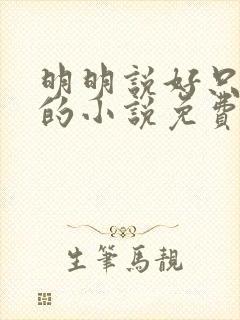 明明說好只
的小說免費
生筆馬靚